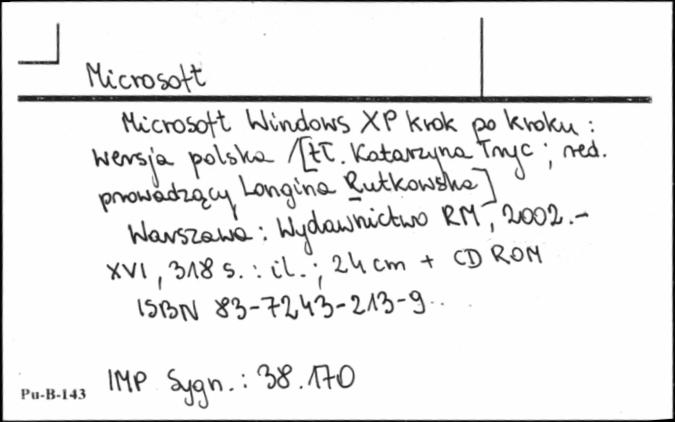 Microsoft
Microsoft Windows XP krok po kroku :
wersja polska /[tł. Katarzyna Tryc ; red.
prowadzący Longina Rutkowska]
Warszawa : Wydawnictwo RM, 2002.-
XVI, 318 s. : il. ; 24 cm + CD ROM
ISBN 83-7243-213-9..
IMP Sygn. : 38.170
Pu-B-143